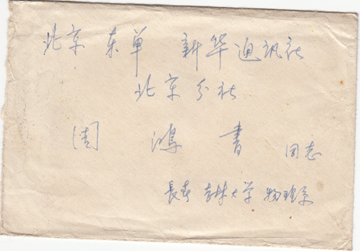 北京 东单 新华通讯社
北京分社
周 鸿 书 同志
長春 吉林大学 物理系